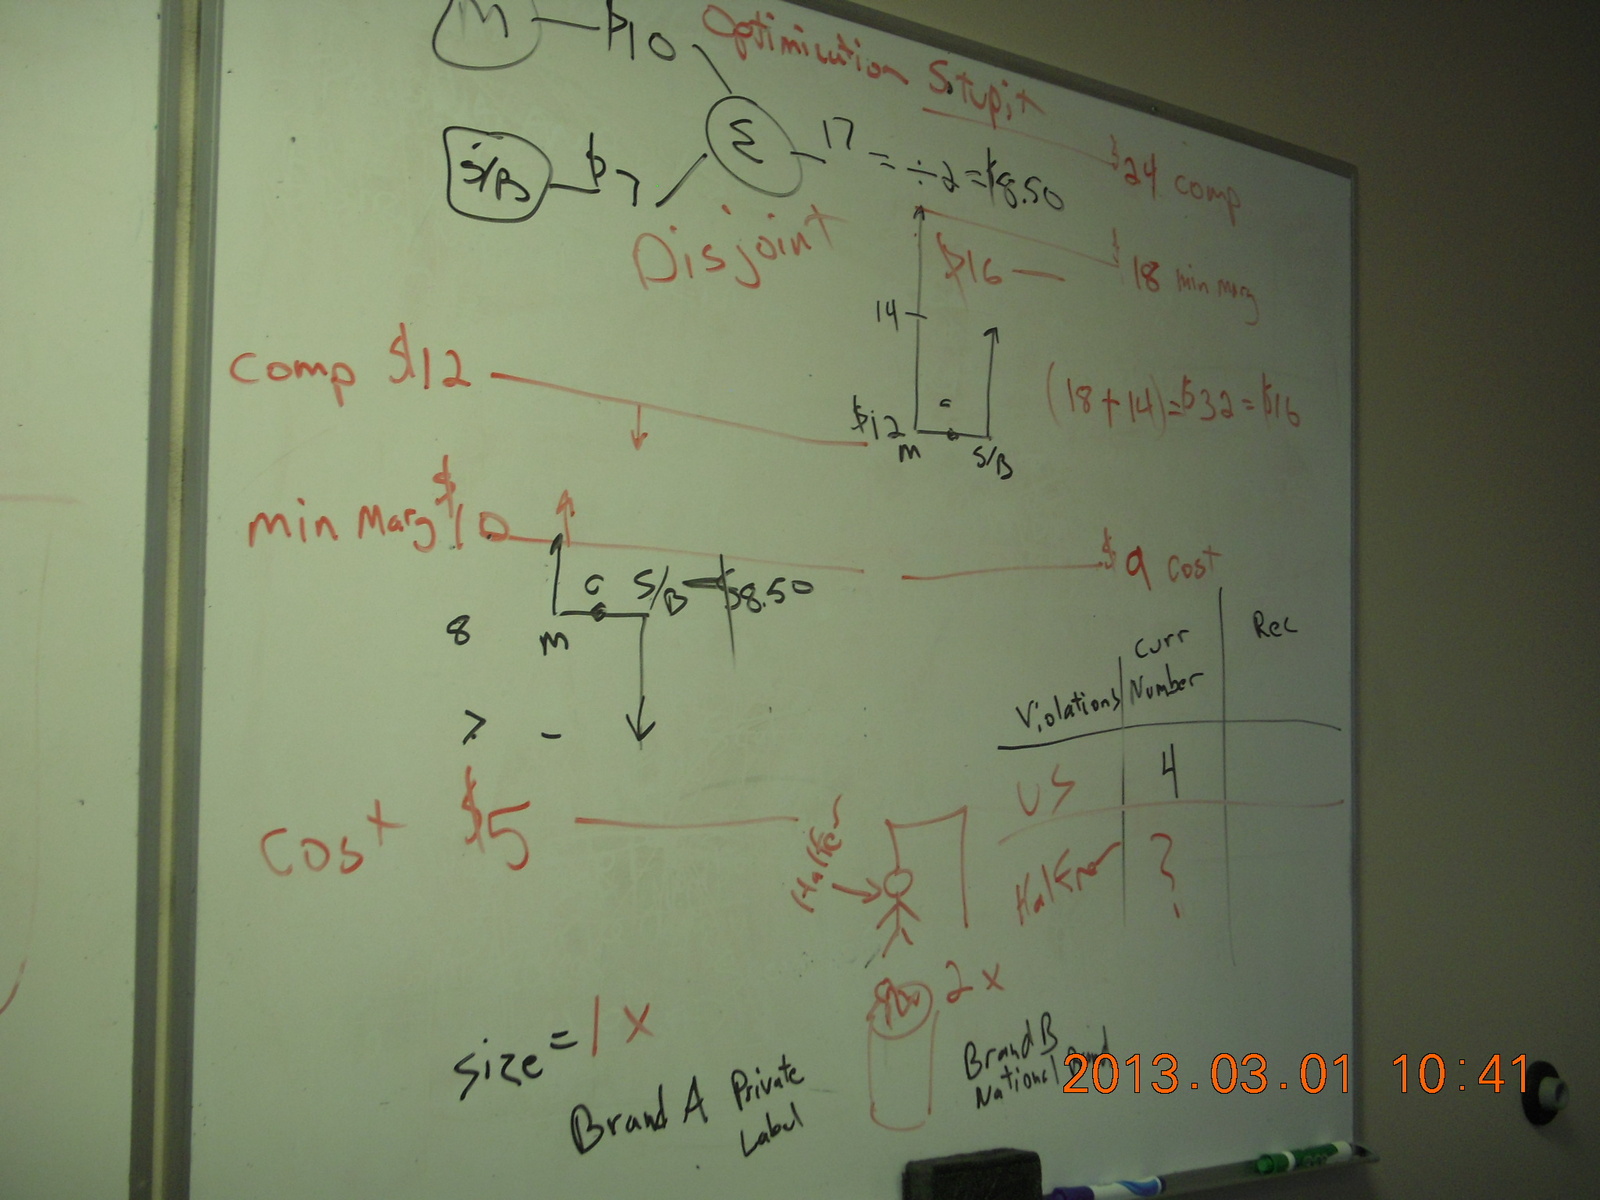 M — $10
Optimization Stupit
S/B — $7
Σ — 17 = ÷2 = $8.50
$24 comp
Disjoint
$16 —
$18 min marg
14
comp $12
(18 + 14) = $32 = $16
$12
c
M
S/B
min Marg $10
$9 cost
c S/B — $8.50
8
M
> -
Violations Curr Number Rec
US 4
cost $5
Halfner
Halfner ?
size = 1x
2x
Brand A Private Label
Brand B National Brand
2013.03.01 10:41